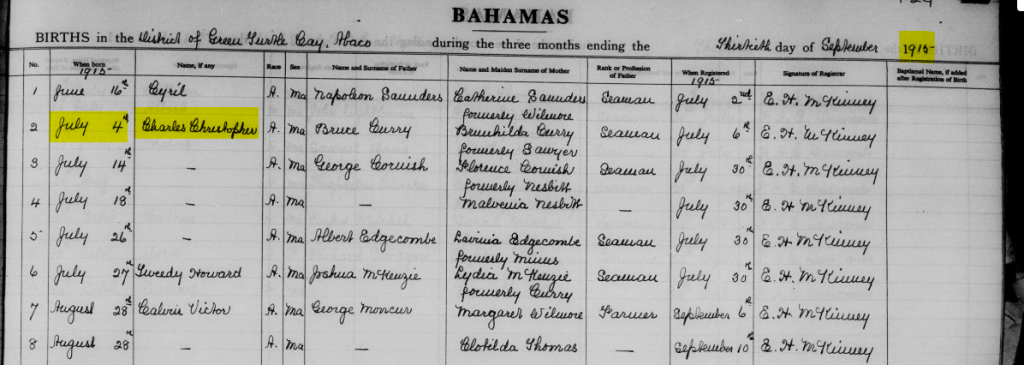 BAHAMAS
BIRTHS in the District of Green Turtle Cay, Abaco during the three months ending the Thirtieth day of September 1915-
No. When born Name, if any Race Sex Name and Surname of Father Name and Maiden Surname of Mother Rank or Profession of Father When Registered Signature of Registrar Baptismal Name, if added after Registration of Birth
1915- 1915-
1 June 16th Cyril A. Ma Napoleon Saunders Catherine Saunders Seaman July 2nd E. H. McKinney
formerly Wilmore
2 July 4th Charles Christopher A. Ma Bruce Curry Brunhilda Curry Seaman July 6th E. H. McKinney
formerly Sawyer
3 July 14th — A. Ma George Cornish Florence Cornish Seaman July 30th E. H. McKinney
formerly Nesbitt
4 July 18th — A. Ma — Malvenia Nesbitt — July 30th E. H. McKinney
5 July 26th — A. Ma Albert Edgecombe Lavinia Edgecombe Seaman July 30th E. H McKinney
formerly Minus
6 July 27th Tweedy Howard A. Ma Joshua McKenzie Lydia McKenzie Seaman July 30th E. H. McKinney
formerly Curry
7 August 28th Victor A. Ma George Moncur Margaret Wilmore Farmer September 6th E. H. McKinney
8 August 28th — A. Ma — Clotilda Thomas — September 10th E. H. McKinney